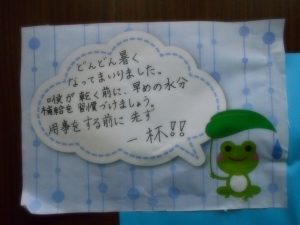 どんどん暑く
なってまいりました。
喉が乾く前に、早めの水分
補給を習慣づけましょう。
用事をする前に 先ず
一杯!!